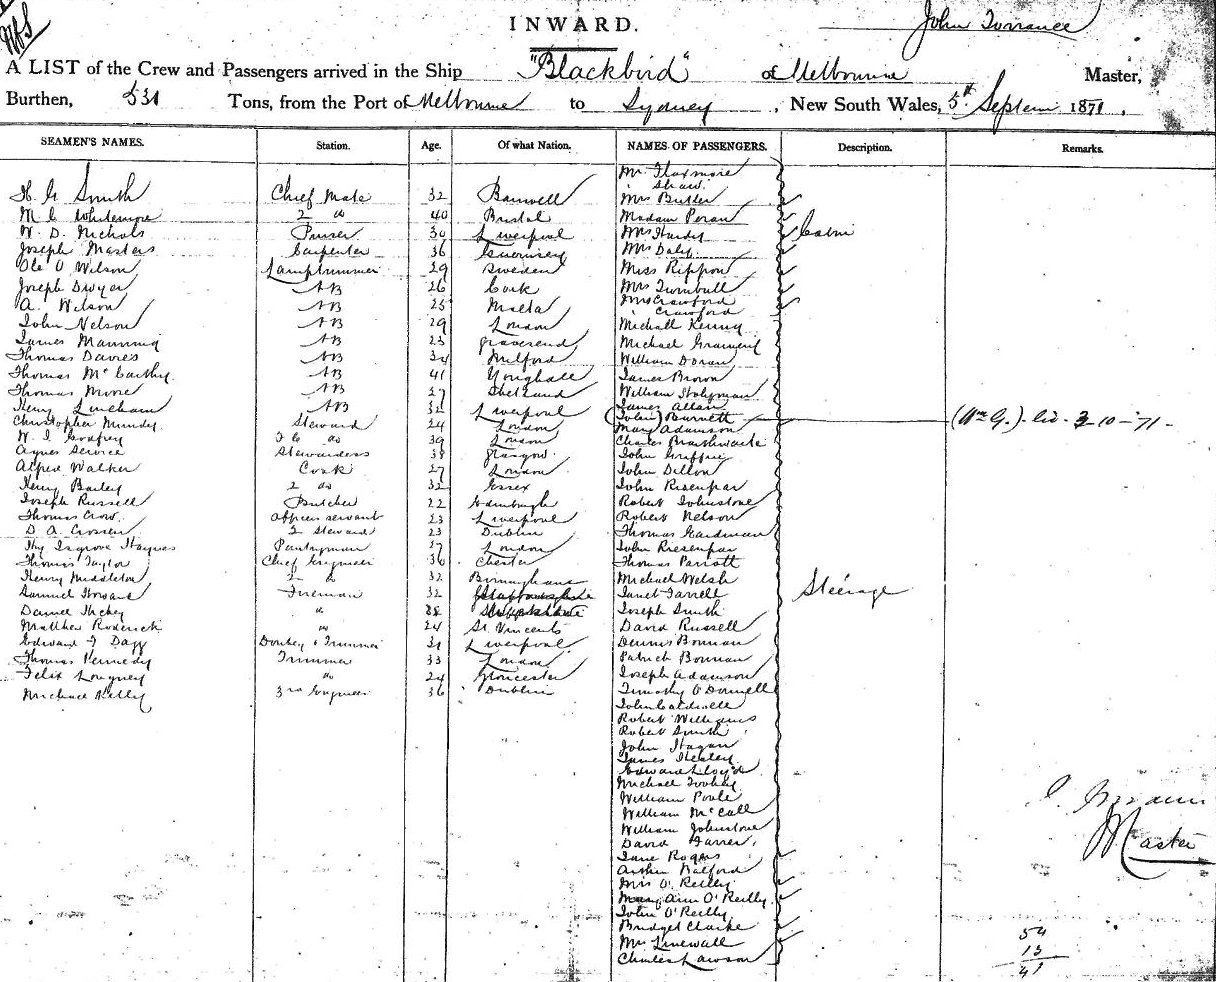 INWARD.
John Torrance
A LIST of the Crew and Passengers arrived in the Ship "Blackbird" of Melbourne Master,
Burthen, 531 Tons, from the Port of Melbourne to Sydney, New South Wales, 5th Septem 1871.
SEAMEN'S NAMES. Station. Age. Of what Nation. NAMES OF PASSENGERS. Description. Remarks.
Mr Flaxmore
" Shaw
H. G. Smith Chief Mate 32 Banwell Mrs Butler
M C Whitemore 2 do 40 Bristol Madam Peran
W. D. Nichols Purser 30 Liverpool Mrs Hardy Cabin
Joseph Masters Carpenter 36 Guernsey Mrs Daly
Ole O Wilson Lamptrimmer 29 Sweden Miss Rippon
Joseph Dwyer AB 26 Cork Mrs Turnbull
A. Wilson AB 25 Malta Mrs Crawford
" Crawford
John Nelson AB 29 London Michall Kenny
James Manning AB 23 Gravesend Michael
Thomas Davies AB 34 Milford William Doran
Thomas McCarthy AB 41 Youghall James Brown
Thomas Moore AB 27 Shetland William
Henry Lineham AB 32 Liverpool James Allan
Christopher Mundy Steward 24 London (John) Burnett (Wm G.) 2-10-71-
W. J. Godfrey F C do 39 London Mary Adamson
Agnes Service Stewardess 38 Glasgow Charles Braithwaite
Alfred Walker Cook 27 London John Griffin
John Dillon
Henry Bailey 2 do 32 Essex John Risenpar
Joseph Russell Butcher 22 Edinburgh Robert Johnstone
Thomas Crow Officers servant 23 Liverpool Robert Nelson
D. A. Crossen 2 Steward 23 Dublin Thomas Hardiman
Hy Isgrove Haynes Pantryman 27 London John Riesenpar
Thomas Taylor Chief Engineer 36 Chester Thomas Parrott
Henry Middleton 2 do 32 Birmingham Michael Welsh
Samuel Howard Fireman 32 Janet Farrell Steerage
Daniel Hickey " 28 Joseph Smith
Matthew Roderick " 24 St. Vincents David Russell
Edward F Dagg Donkey & Trimmer 31 Liverpool Dennis Bonnan
Thomas Kennedy Trimmer 33 London Patrick Bonnan
Felix Longney " 24 Gloucester Joseph Adamson
Michael Kelly 3rd Engineer 36 Dublin Timothy O'Donnell
John Caldwell
Robert Williams
Robert Smith
John Hagan
James Healey
Edward Lloyd
Michael Toohey
William Poole
William McCall
William Johnstone
David Farrer
Jane Rogers
Arthur Walford
Mrs O'Reilly
Mary Ann O'Reilly
John O'Reilly
Bridget Clarke
Mr Linewall
Charles Lawson
Master
54
13
41